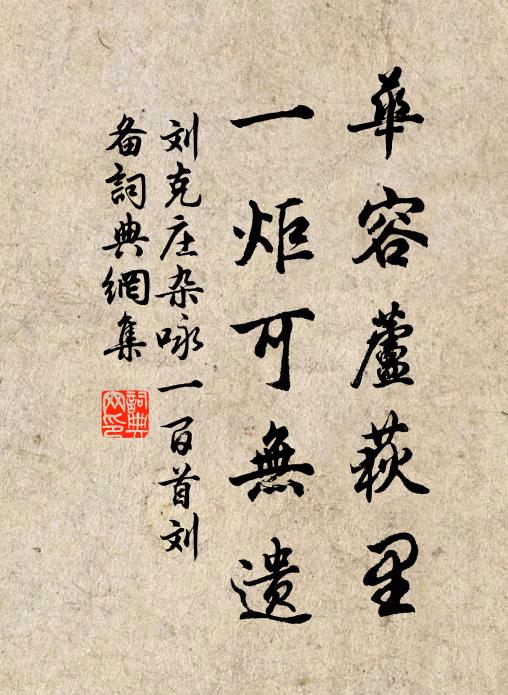 華容蘆荻里
一炬可無遺
刘克庄杂咏一百首刘
备詞典網集
詞典
网印